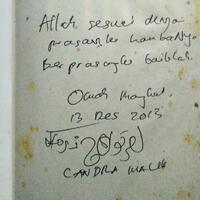 Allah sesuai dengan
prasangka hambaNya.
Berprasangka baiklah.
13 Des 2013
CANDRA MALIK